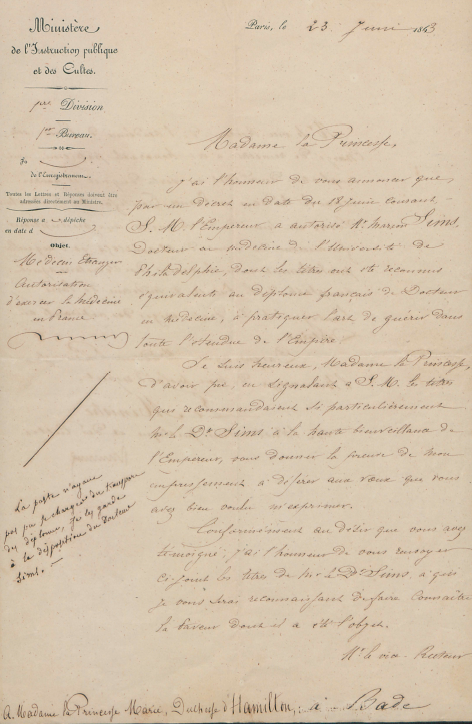 Ministère
de l'Instruction publique
et des Cultes.
1re Division
1er Bureau.
de l'Enregistrement.
Toutes les Lettres et Réponses doivent être
adressées directement au Ministre.
Réponse à dépêche
en date d
Objet
Médecin Etranger
Autorisation
d'exercer la Médecine
en France
Paris, le 23 Juin 1863
Madame la Princesse,
J'ai l'honneur de vous annoncer que,
par un décret en date du 18 Juin courant
S. M. l'Empereur a autorisé Mr. Marion Sims,
Docteur en médecine de l'Université de
Philadelphie, dont les titres ont été reconnus
équivalents au diplôme français de Docteur
en médecine, à pratiquer l'art de guérir dans
toute l'étendue de l'Empire.
Je suis heureux, Madame la Princesse,
d'avoir pu, en signalant à S. M. les titres
que recommandaient si particulièrement
Mr. le Dr. Sims à la haute bienveillance de
l'Empereur, vous donner la preuve de mon
empressement à déférer aux vœux que vous
avez bien voulu m'exprimer.
Conformément au désir que vous avez
témoigné, j'ai l'honneur de vous envoyer
ci-joint les titres de Mr. le Dr. Sims, à qui
je vous serai reconnaissant de faire connaître
la faveur dont il a été l'objet.
Mr. le vice-Recteur
La poste n'ayant
pas pu se charger du transport
des diplômes, je les garde
à la disposition du Docteur
Sims.
A Madame la Princesse Marie, Duchesse d'Hamilton, à Bade